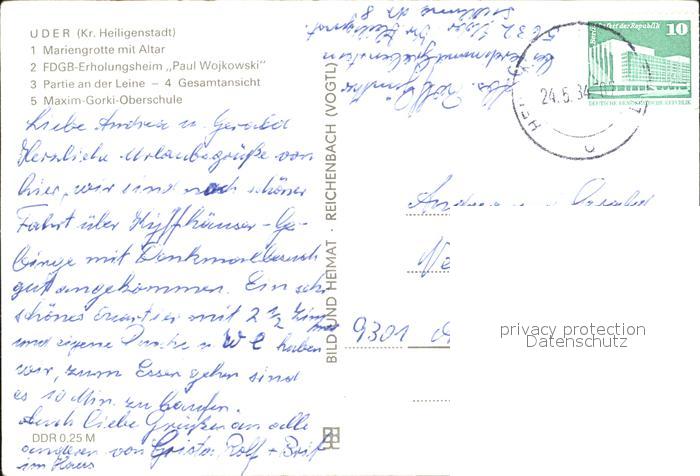 UDER (Kr. Heiligenstadt)
1 Mariengrotte mit Altar
2 FDGB-Erholungsheim „Paul Wojkowski"
3 Partie an der Leine – 4 Gesamtansicht
5 Maxim-Gorki-Oberschule
Liebe Andrea u. Gerald
Herzliche Urlaubsgrüße von
hier, wir sind nach schöner
Fahrt über Kyffhäuser-Ge-
birge mit Denkmalbesuch
gut angekommen. Ein sehr
schönes Quartier mit 2 ½ Zim
mer
und eigene Dusche u. WC haben
wir, zum Essen gehen sind
es 10 Min. zu laufen.
Auch liebe Grüße an alle
anderen von Christa, Rolf + Brit
im Haus
DDR 0,25 M
BILD UND HEIMAT · REICHENBACH (VOGTL)
Abs. Rolf
5632 Uder
10
DEUTSCHE DEMOKRATISCHE REPUBLIK
24.5.84
Andrea u. Gerald
9301
privacy protection
Datenschutz